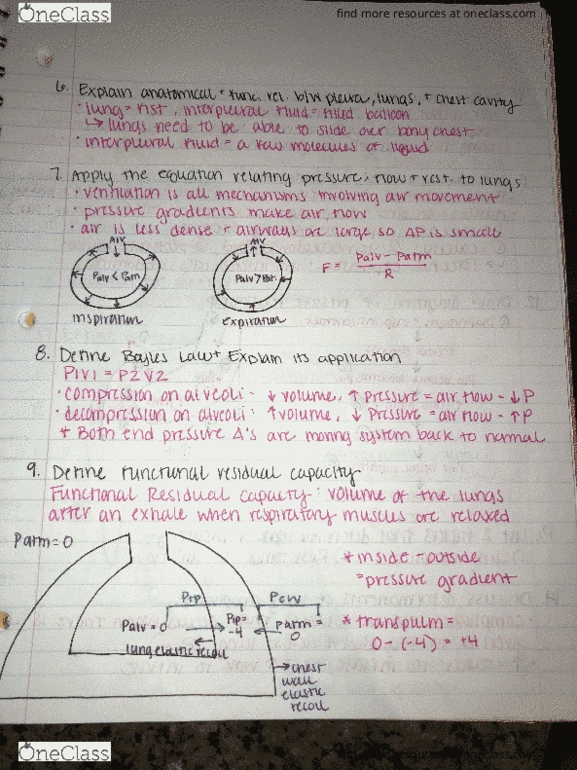 OneClass
find more resources at oneclass.com
6. Explain anatomical + func. rel. b/w pleura, lungs, + chest cavity
· lung = fist, interpleural fluid = filled balloon
↳ lungs need to be able to slide over bony chest
· interpleural fluid = a few molecules of liquid
7. Apply the equation relating pressure, flow + rest. to lungs
· ventilation is all mechanisms involving air movement
· pressure gradients make air flow
· air is less dense + airways are large so ΔP is small
Air
Palv < Patm
inspiration
Air
Palv > Pat.
expiration
F = Palv - Patm / R
8. Define Boyles Law + Explain its application
P1V1 = P2V2
· compression on alveoli - ↓ volume, ↑ Pressure = air flow - ↓P
· decompression on alveoli: ↑ volume, ↓ Pressure = air flow - ↑P
+ Both end pressure Δ's are moving system back to normal
9. Define functional residual capacity
Functional Residual capacity: volume of the lungs
after an exhale when respiratory muscles are relaxed
Patm = 0
* inside - outside
= pressure gradient
Ptp
Pcw
Palv = 0
Pip = -4
Patm = 0
lung elastic recoil
* transpulm =
0 - (-4) = +4
→ chest
wall
elastic
recoil
OneClass
find more resources at oneclass.com